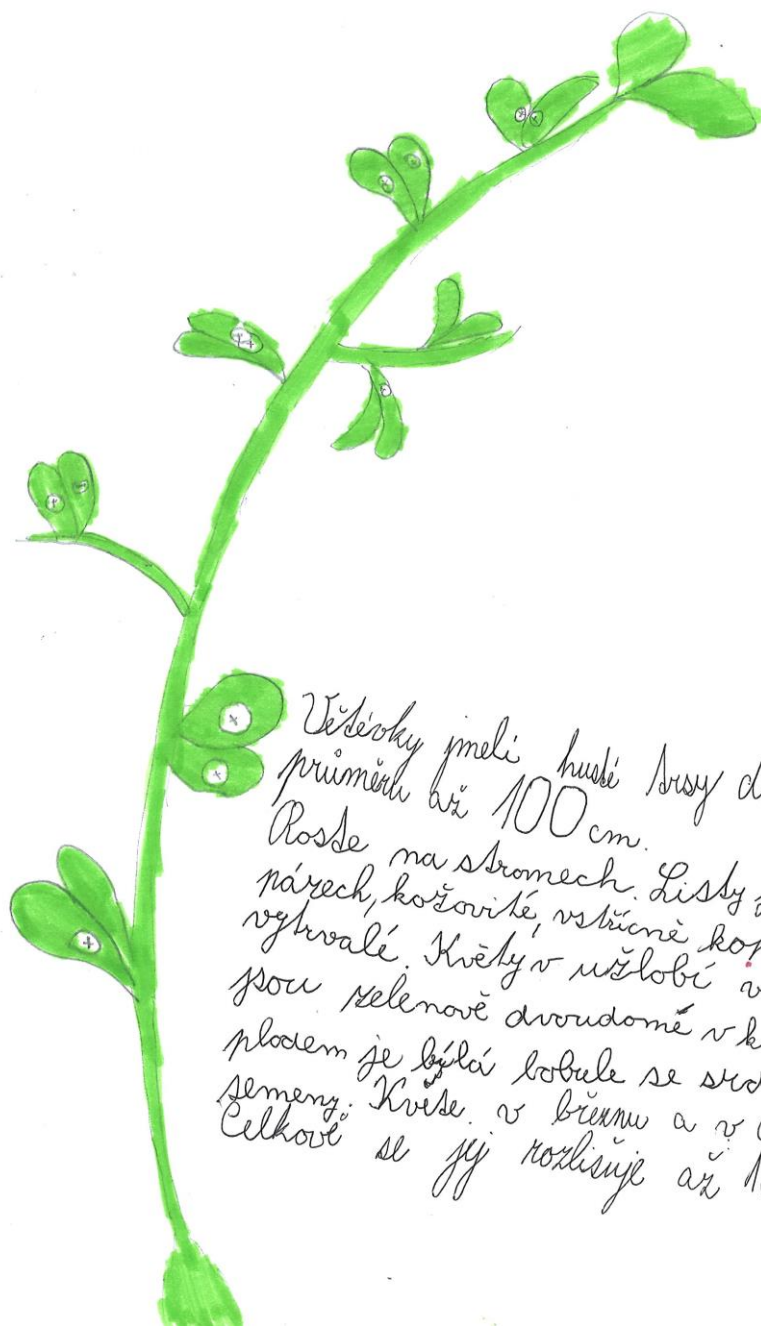 Větévky jmelí husté trsy d
průměru až 100 cm.
Roste na stromech. Listy v
párech, kožovité, vstřícně kop
vytrvalé. Květy v užlobí v
jsou zelenově dvoudomé v k
plodem je bílá bobule se srd
semeny. Květe. v březnu a v d
Celkově se jej rozlišuje až 1